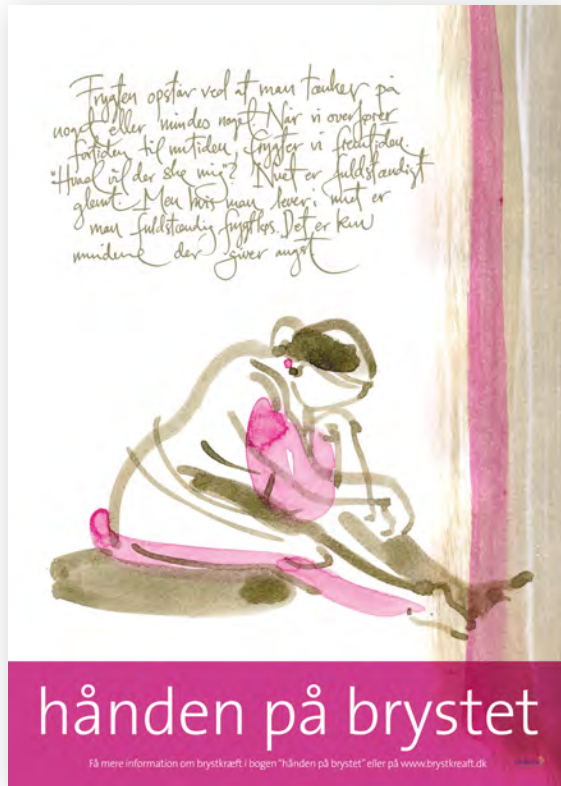 Frygten opstår ved at man tænker på
noget eller mindes noget. Når vi overfører
fortiden til nutiden, frygter vi fremtiden.
"Hvad vil der ske mig"? Nuet er fuldstændigt
glemt. Men hvis man lever i nuet er
man fuldstændig frygtløs. Det er kun
minderne der giver angst
hånden på brystet
Få mere information om brystkræft i bogen "hånden på brystet" eller på www.brystkreaft.dk